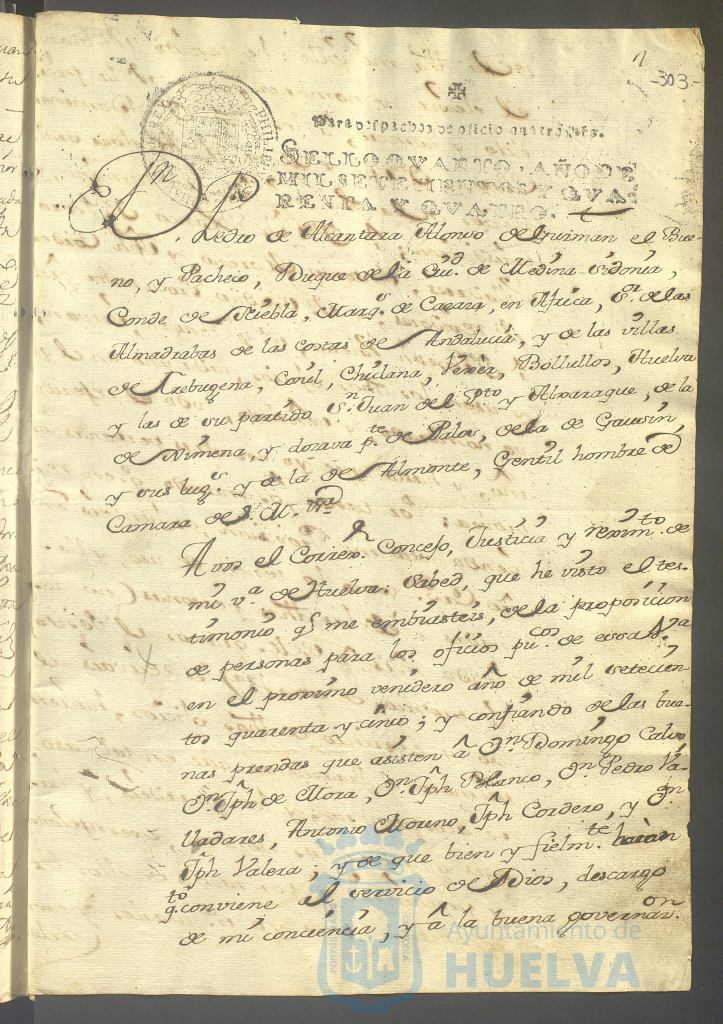 -303-
Para despachos de oficio quatro mrs.
SELLO QVARTO, AÑO DE
MIL SETECIENTOS Y QVA
RENTA Y QVATRO.
Dn Pedro de Alcantara Alonso de Guzman el Bue-
no, y Pacheco, Duque de la Ciud. de Medina Sidonia,
Conde de Niebla, Marqs. de Cazaza, en Africa, Sr. de las
Almadrabas de las costas de Andalucia, y de las villas
de Trebugena, Conil, Chiclana, Vexer, Bollullos, Huelva
y las de su partido Sn. Juan del Pto y Alparaque, de la
de Ximena, y dozava pte. de Palos, de la de Gausin,
y sus lugs. y de la de Almonte, Gentil hombre de
Camara de S. M. &ra
A vos el Correxr. Concejo, Justicia y reximto. de
mi va. de Huelva: Sabed, que he visto el tes-
timonio qe me embiasteis, de la proposicion
de personas para los oficios pucos. de essa Va
en el proximo venidero año de mil setecien
tos quarenta y cinco; y confiando de las bue-
nas prendas que asisten â Dn Domingo Calvo
Dn Jph de Mora, Dn Jph Blanco, Dn Pedro Va-
lladares, Antonio Moreno, Jph Cordero, y Dn
Jph Valera; y de que bien y fielmte. haràn
qto. conviene al servicio de Dios, descargo
de mi conciencia, y â la buena governaon.
Ayuntamiento de
HUELVA